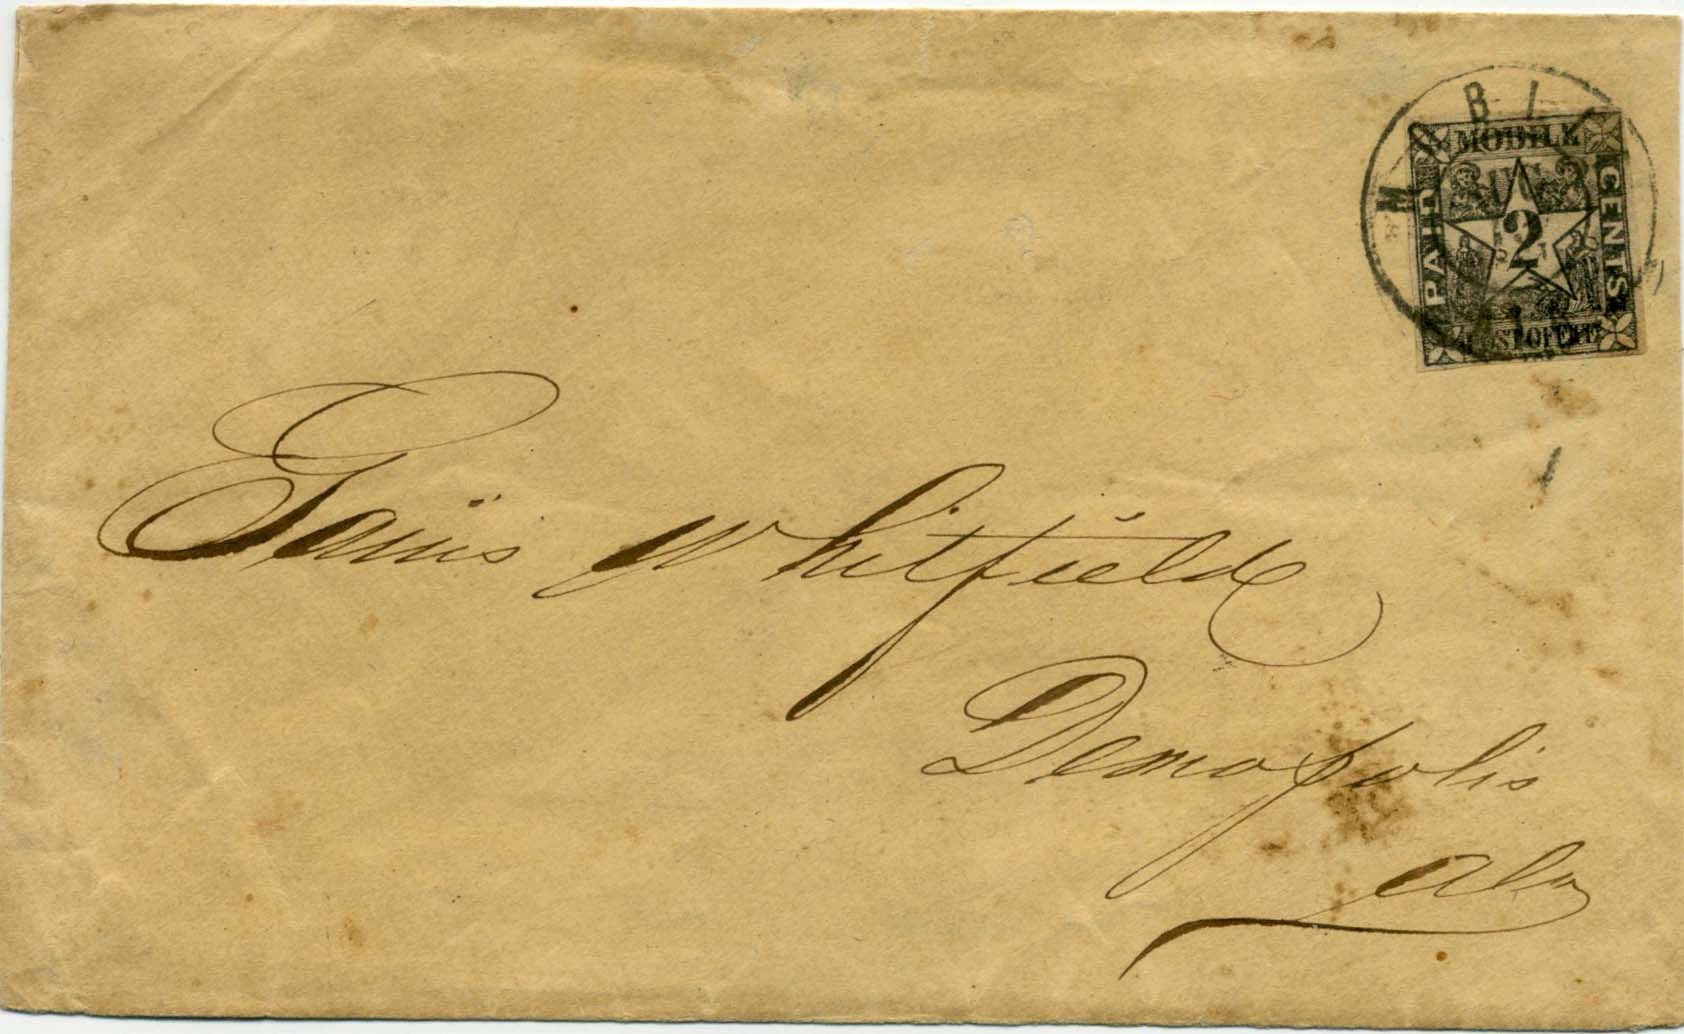 MOBILE
PAID
2
CENTS
POST OFFICE
Gaius Whitfield
Demopolis
Ala